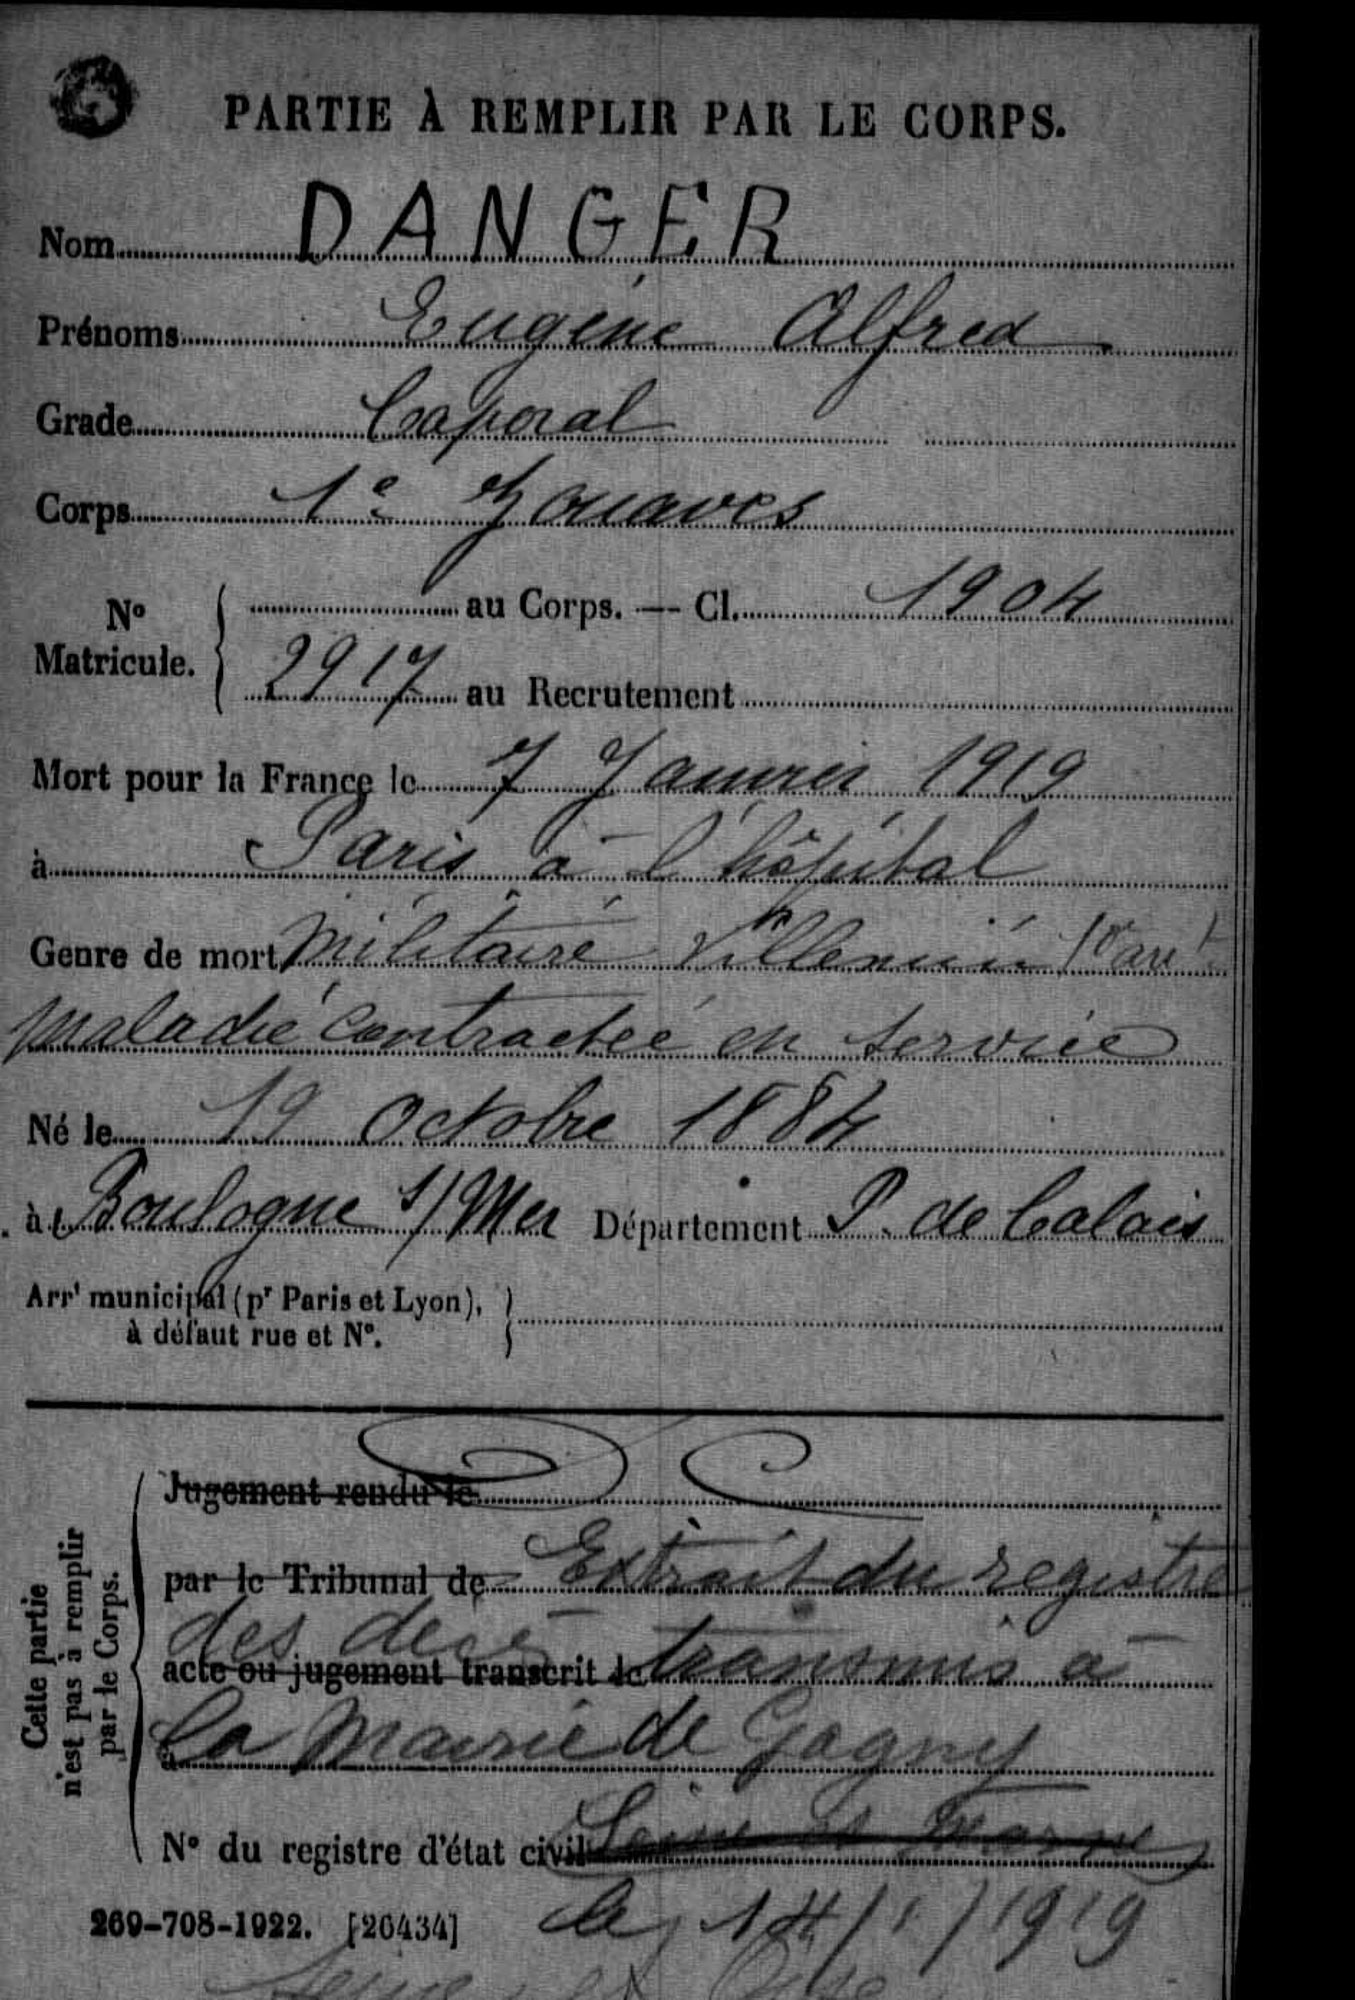 PARTIE À REMPLIR PAR LE CORPS.
Nom DANGER
Prénoms Eugène Alfred
Grade Caporal
Corps 1e Zouaves
N° Matricule. { au Corps. — Cl. 1904
2917 au Recrutement
Mort pour la France le 7 Janvier 1919
à Paris à l'hôpital
Genre de mort militaire Villemin
maladie contractée en service
Né le 19 Octobre 1884
à Boulogne s/Mer Département P. de Calais
Arrt municipal (pr Paris et Lyon),
à défaut rue et N°.
Cette partie
n'est pas à remplir
par le Corps.
Jugement rendu le
par le Tribunal de Extrait du registre
des décès
acte ou jugement transcrit le transmis à
la Mairie de Gagny
N° du registre d'état civil Seine et Marne
269-708-1922. [26434] le 14/1/1919
Seine et Oise